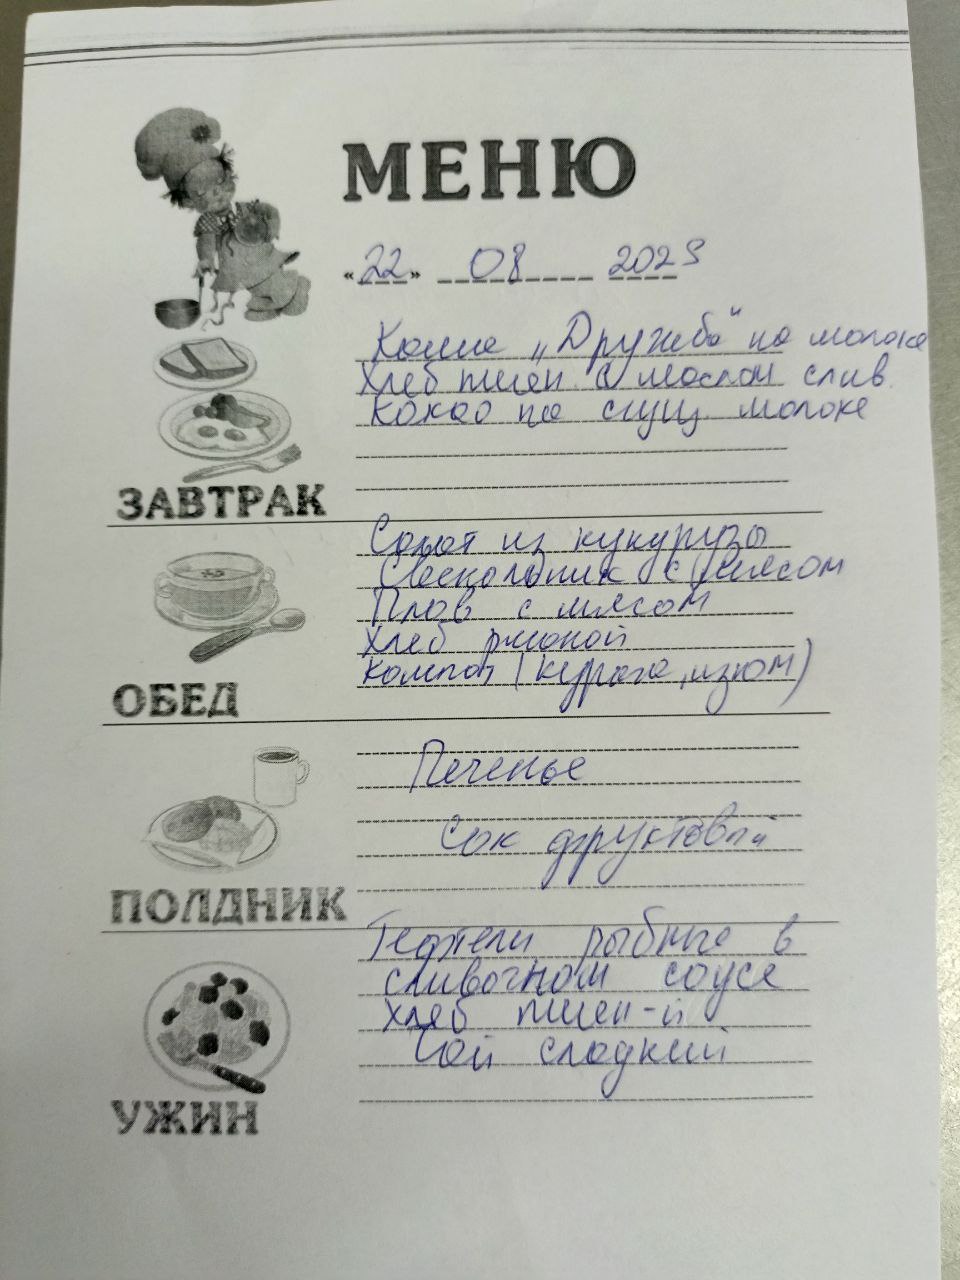 МЕНЮ
«22» 08 2023
Каша „Дружба" на молоке
Хлеб пшен. с маслом слив.
Какао на сгущ. молоке
ЗАВТРАК
Салат из кукурузы
Свекольник с мясом
Плов с мясом
Хлеб ржаной
Компот (курага, изюм)
ОБЕД
Печенье
Сок фруктовый
ПОЛДНИК
Тефтели рыбные в
сливочном соусе
Хлеб пшен-й
Чай сладкий
УЖИН